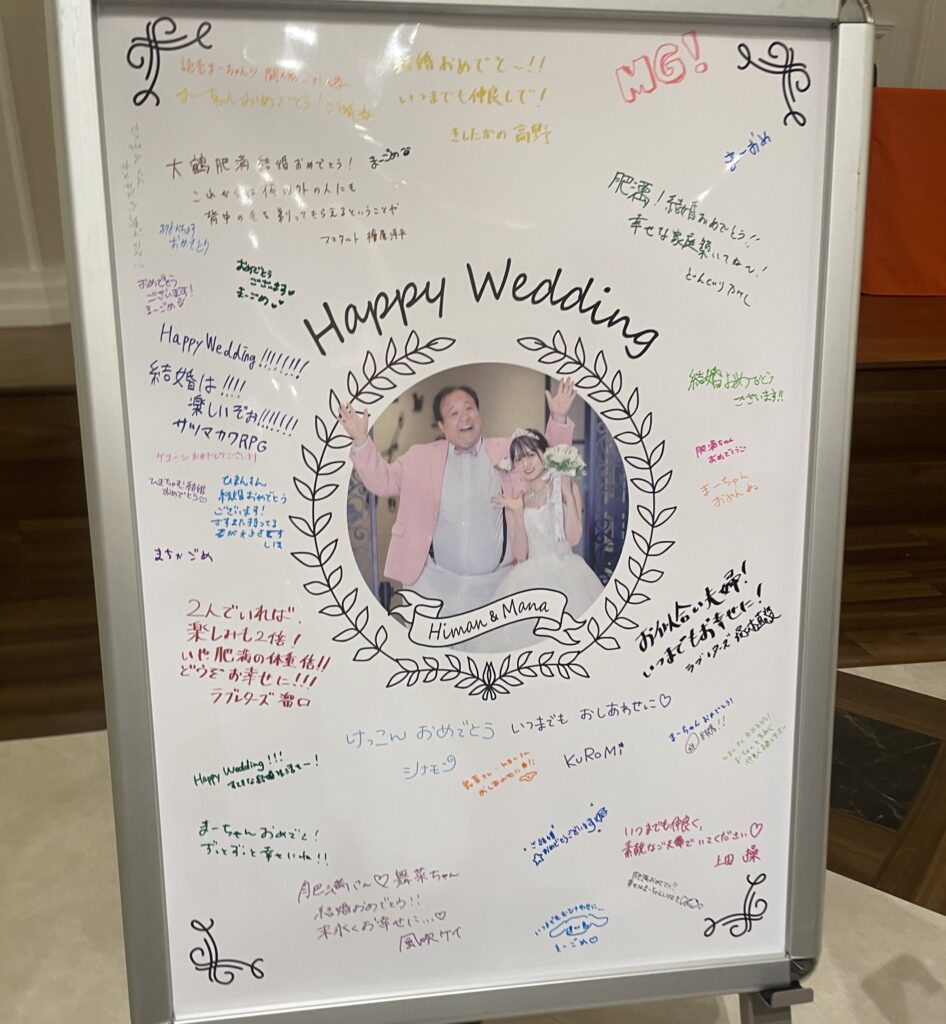 結婚おめでと〜!!
いつまでも仲良しで!
きしたかの 高野
MG!
まーちゃんおめでとう!ごめんね
まーおめ
大鶴肥満結婚おめでとう! まーごめ
これからは俺以外の人にも
背中の毛を剃ってもらえるということか
ママタルト 檜原洋平
肥満!結婚おめでとう!!
幸せな家庭築いてな〜!
どんぐりたけし
おめでとう
おめでとう
ございます!
まーごめ
おめでとう
ございます
まーごめ
Happy Wedding
Happy Wedding!!!!!!!!
結婚は!!!!
楽しいぞぉ!!!!!!!
サツマカワRPG
結婚おめでとう
ございます!!
肥満ちゃん
おめでとう
まーちゃん
おめんぬ
ひまんさん
結婚おめでとう
ございます!
まちかごめ
Himan & Mana
お似合い夫婦!
いつまでもお幸せに!
ラブレターズ 塚本直毅
2人でいれば、
楽しみも2倍!
いや肥満の体重倍!!
どうぞお幸せに!!!
ラブレターズ 溜口
けっこん おめでとう いつまでも おしあわせに♡
シナモン
KUROMI
まーちゃんおめでとう!
Happy Wedding!!!
まーちゃんおめでと!
ずっとずっと幸せいね!!
ご結婚
☆おめでとうございます
いつまでも仲良く、
素敵なご夫婦でいてください♡
上田 操
肥満くん♡舞菜ちゃん
結婚おめでとう!!
末永くお幸せに...♡
風吹ケイ
肥満おめでとう!!
いつまでもおしあわせに...
まーごめ♡